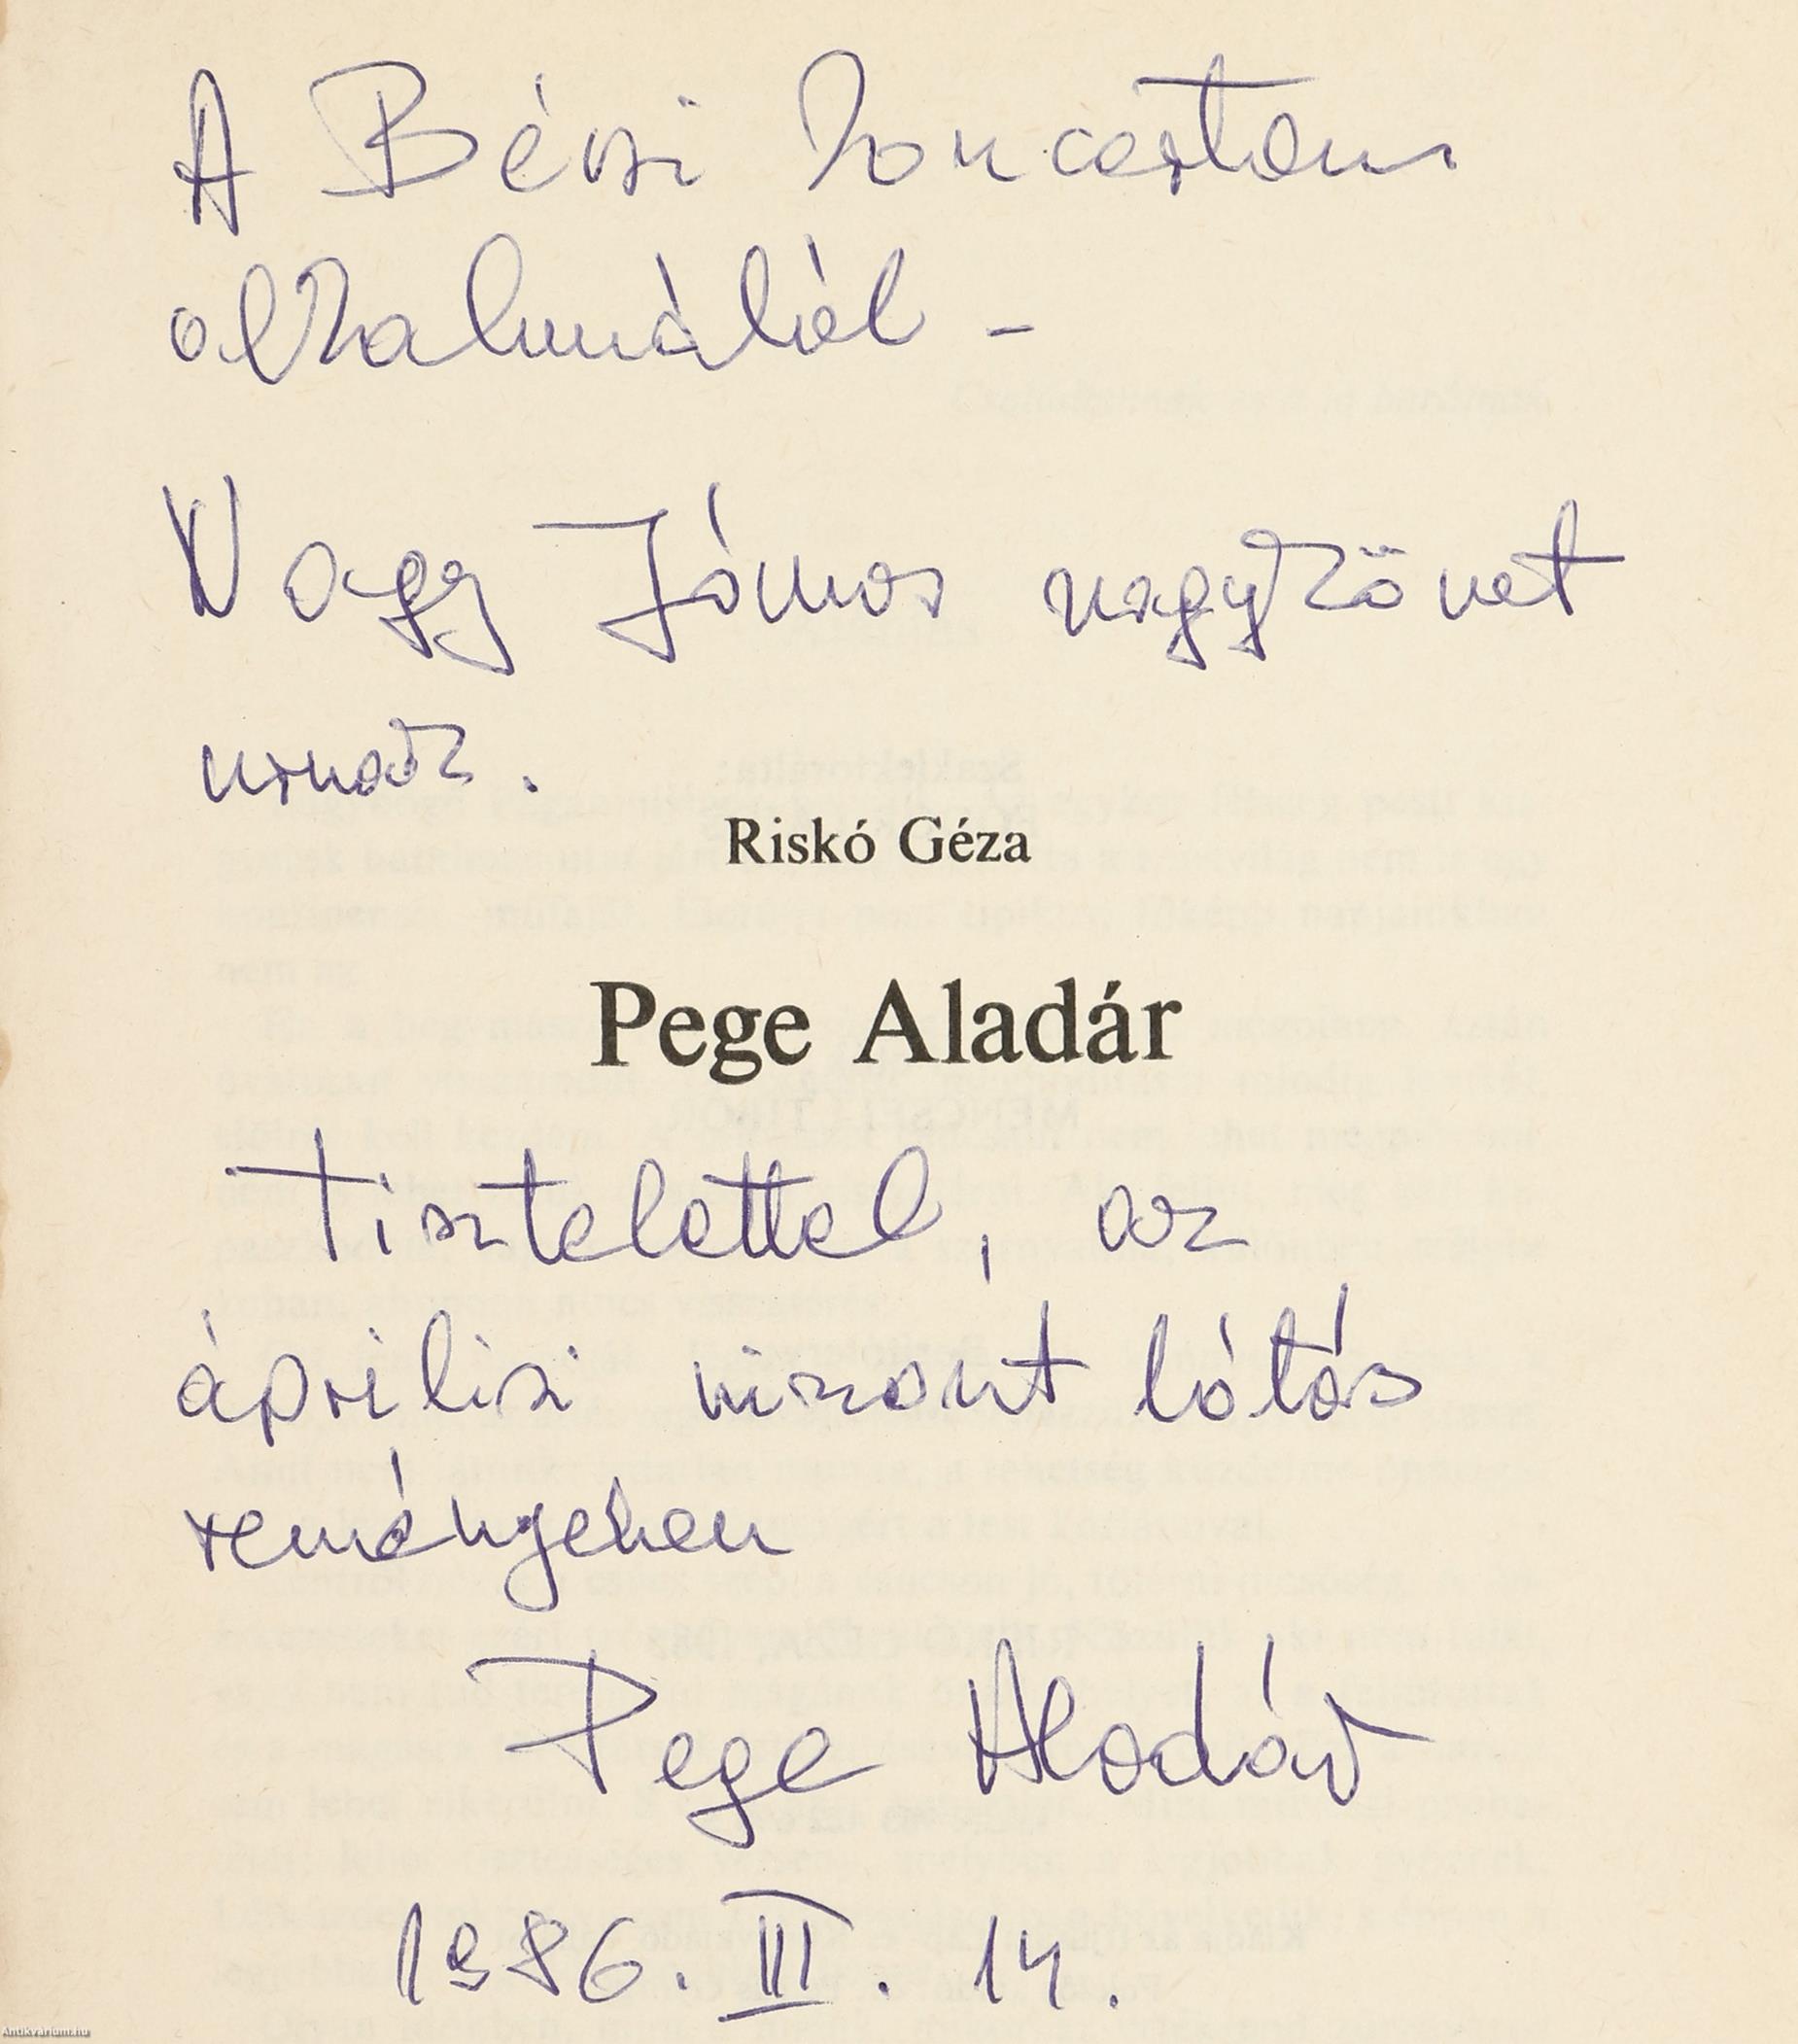 A Bécsi koncertem
alkalmából -
Nagy János nagykövet
úrnak.
Riskó Géza
Pege Aladár
Tisztelettel, az
áprilisi viszont látás
reményeben
Pege Aladár
1986. III. 14.
Antikvarium.hu